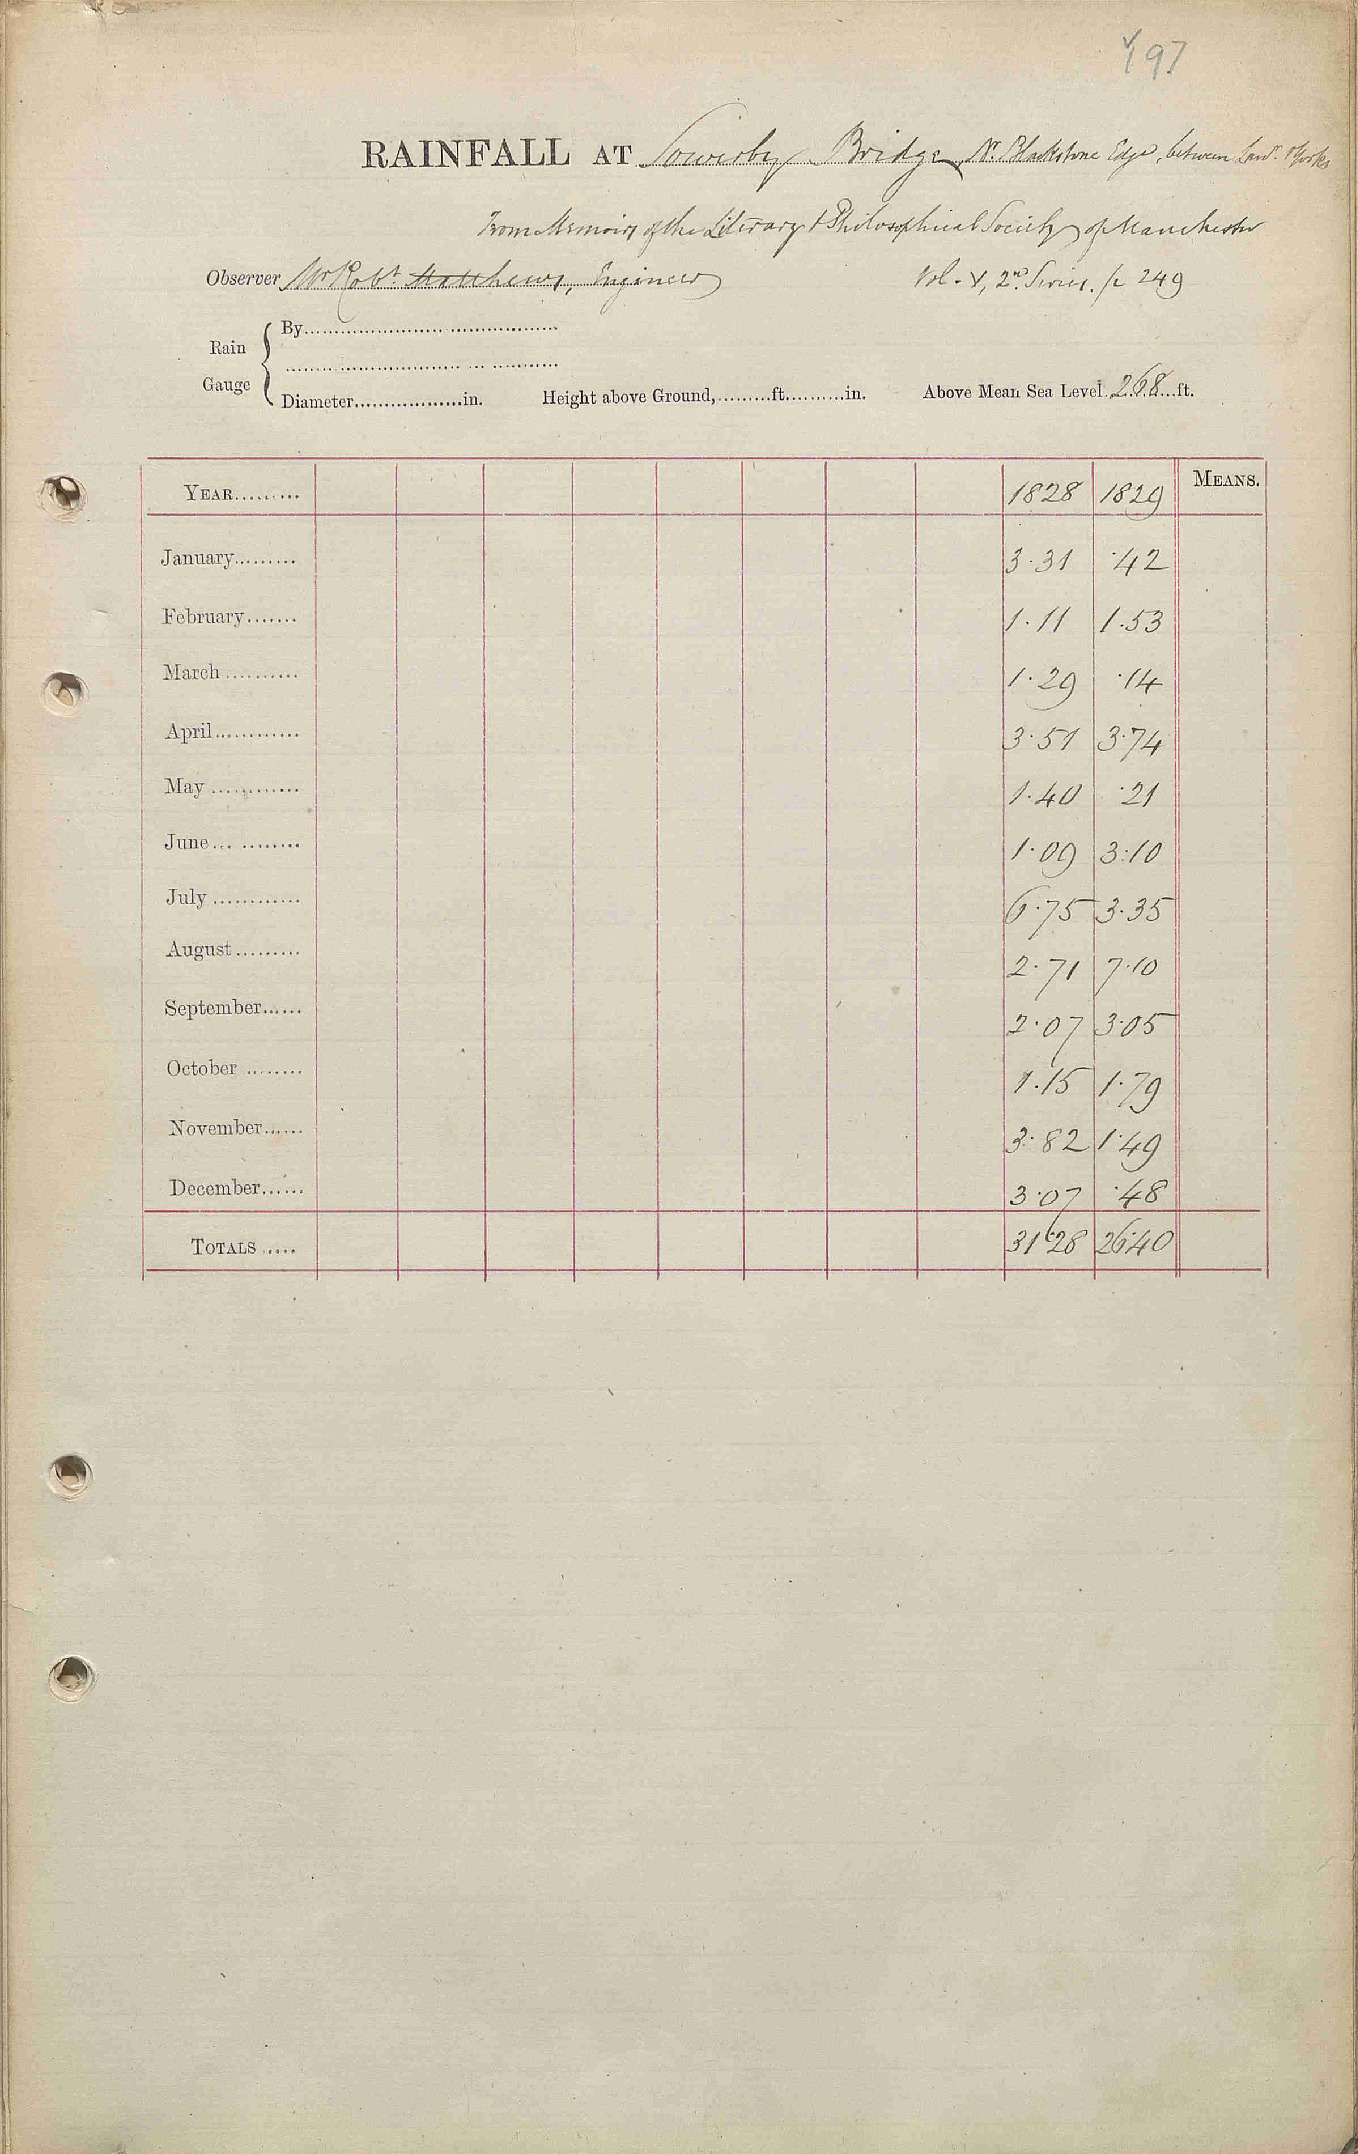 197
RAINFALL AT Sowerby Bridge, Nr. Blackstone Edge, between Lanc. & Yorks
From Memoirs of the Literary & Philosophical Society of Manchester
Observer Mr Robt. Matthews, Engineer Vol. V, 2nd. Series. p 249
Rain Gauge
By
Diameter in. Height above Ground, ft. in. Above Mean Sea Level 268 ft.
YEAR 1828 1829 MEANS.
January 3.31 .42
February 1.11 1.53
March 1.29 .14
April 3.51 3.74
May 1.40 .21
June 1.09 3.10
July 6.75 3.35
August 2.71 7.10
September 2.07 3.05
October 1.15 1.79
November 3.82 1.49
December 3.07 .48
TOTALS 31.28 26.40